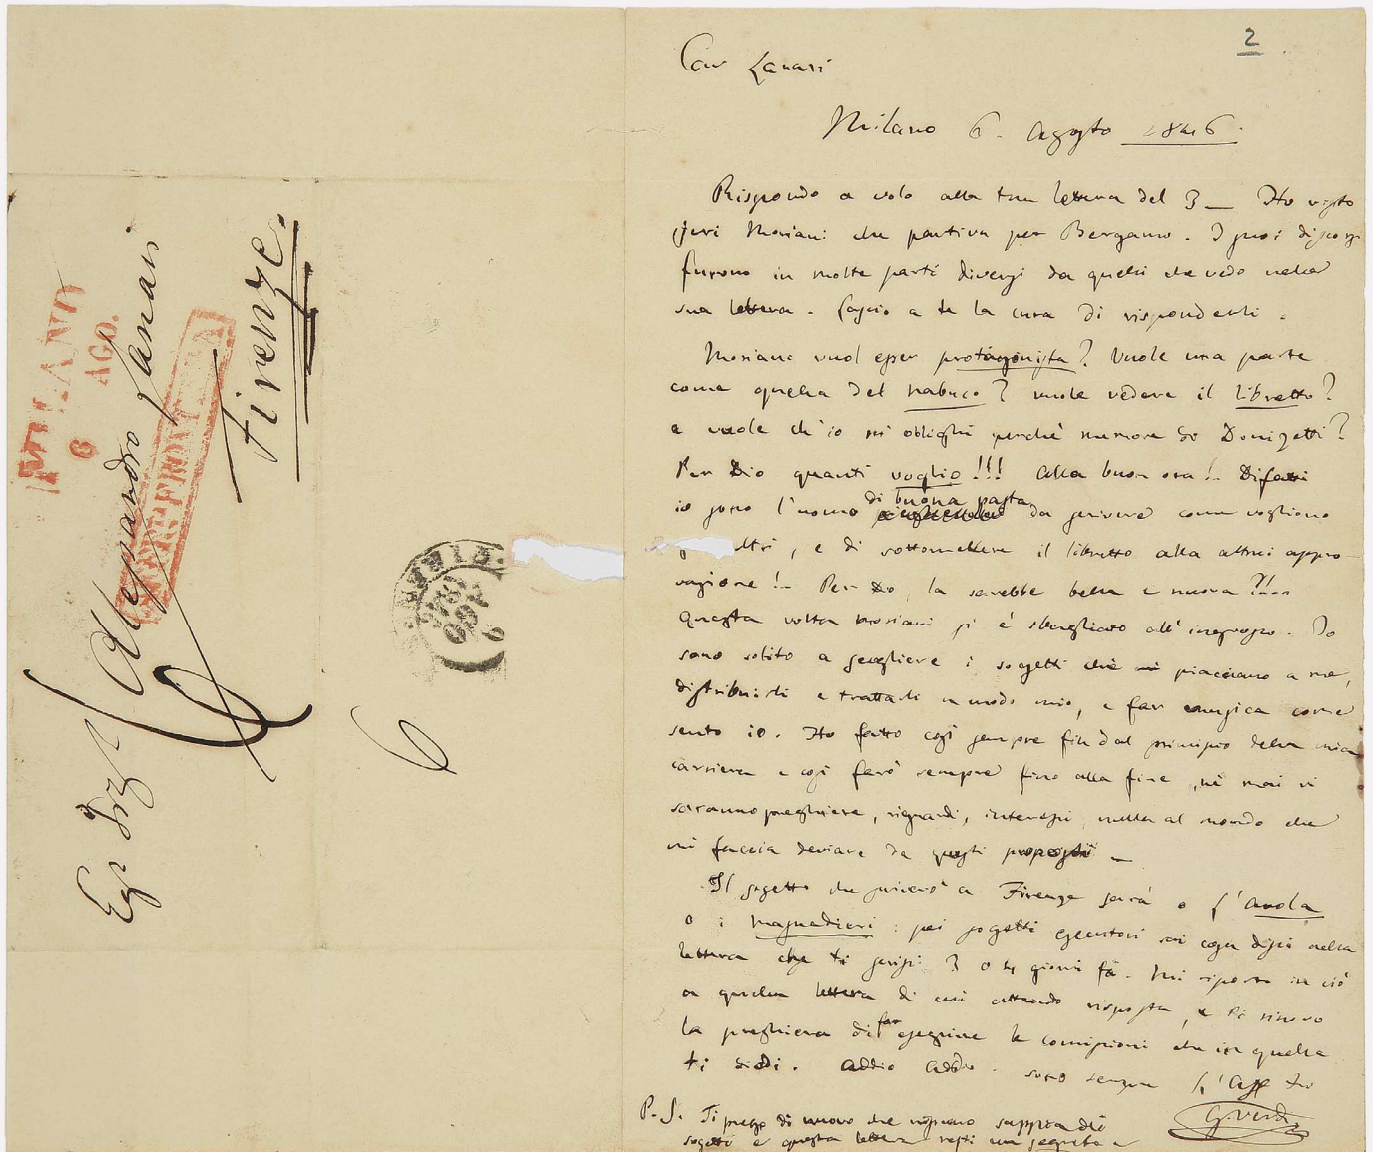 2
Caro Lanari
Milano 6. Agosto 1846.
Rispondo a volo alla tua lettera del 3 — Ho visto
jeri Moriani che partiva per Bergamo. I suoi discorsi
furono in molte parti diversi da quelli che vedo nella
sua lettera. Lascio a te la cura di risponderli.
Moriani vuol esser protagonista? Vuole una parte
come quella del Nabuco? vuole vedere il libretto?
e vuole ch'io mi oblighi perchè memore di Donizetti?
Per Dio quanti voglio!!! Alla buon ora!.. Difatti
io sono l'uomo di buona pasta da scrivere come vogliono
altri, e di sottomettere il libretto alla altrui appro-
vazione!.. Per Dio, la sarebbe bella e nuova?!...
Questa volta Moriani si è sbagliato all'ingrosso. Io
sono solito a scegliere i sogetti che mi piacciono a me,
distribuirli e trattarli a modo mio, e far musica come
sento io. Ho fatto così sempre fin dal principio della mia
carriera e così farò sempre fino alla fine, nè mai vi
saranno preghiere, riguardi, interessi, nulla al mondo che
mi faccia deviare da questi propositi —
Il sogetto che scriverò a Firenze sarà o L'Avola
o i Masnadieri: pei sogetti esecutori sai cosa dissi nella
lettera che ti scrissi 3 o 4 giorni fà. Mi riporto in ciò
a quella lettera di cui attendo risposta, e ti rinnovo
la preghiera di far eseguire le comissioni che in quella
ti diedi. Addio addio. sono sempre L'Aff tuo
G. Verdi
P.S. Ti prego di nuovo che nissuno sappia dei
sogetti e questa lettera resti un segreto
MILANO
6
AGO.
Alessandro Lanari
Firenze
AGO
1846
6